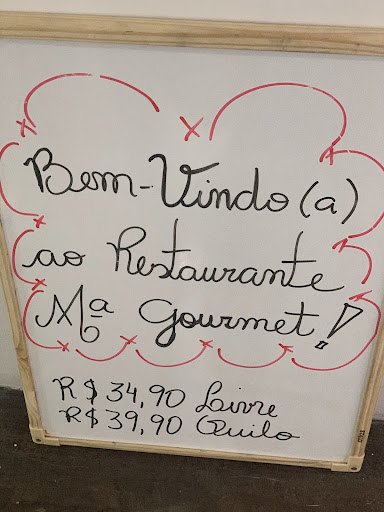 Bem-Vindo(a)
ao Restaurante
Mª Gourmet!
R$ 34,90 Livre
R$ 39,90 Quilo